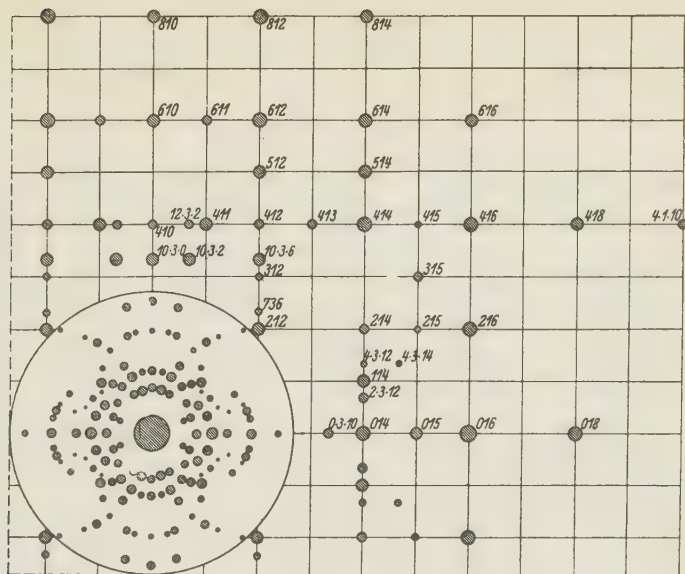 810 812 814
610 611 612 614 616
512 514
12·3·2 411 412 413 414 415 416 418 4·1·10
410
10·3·0 10·3·2 10·3·6
312 315
736
212 214 215 216
4·3·12 4·3·14
114
2·3·12
0·3·10 014 015 016 018